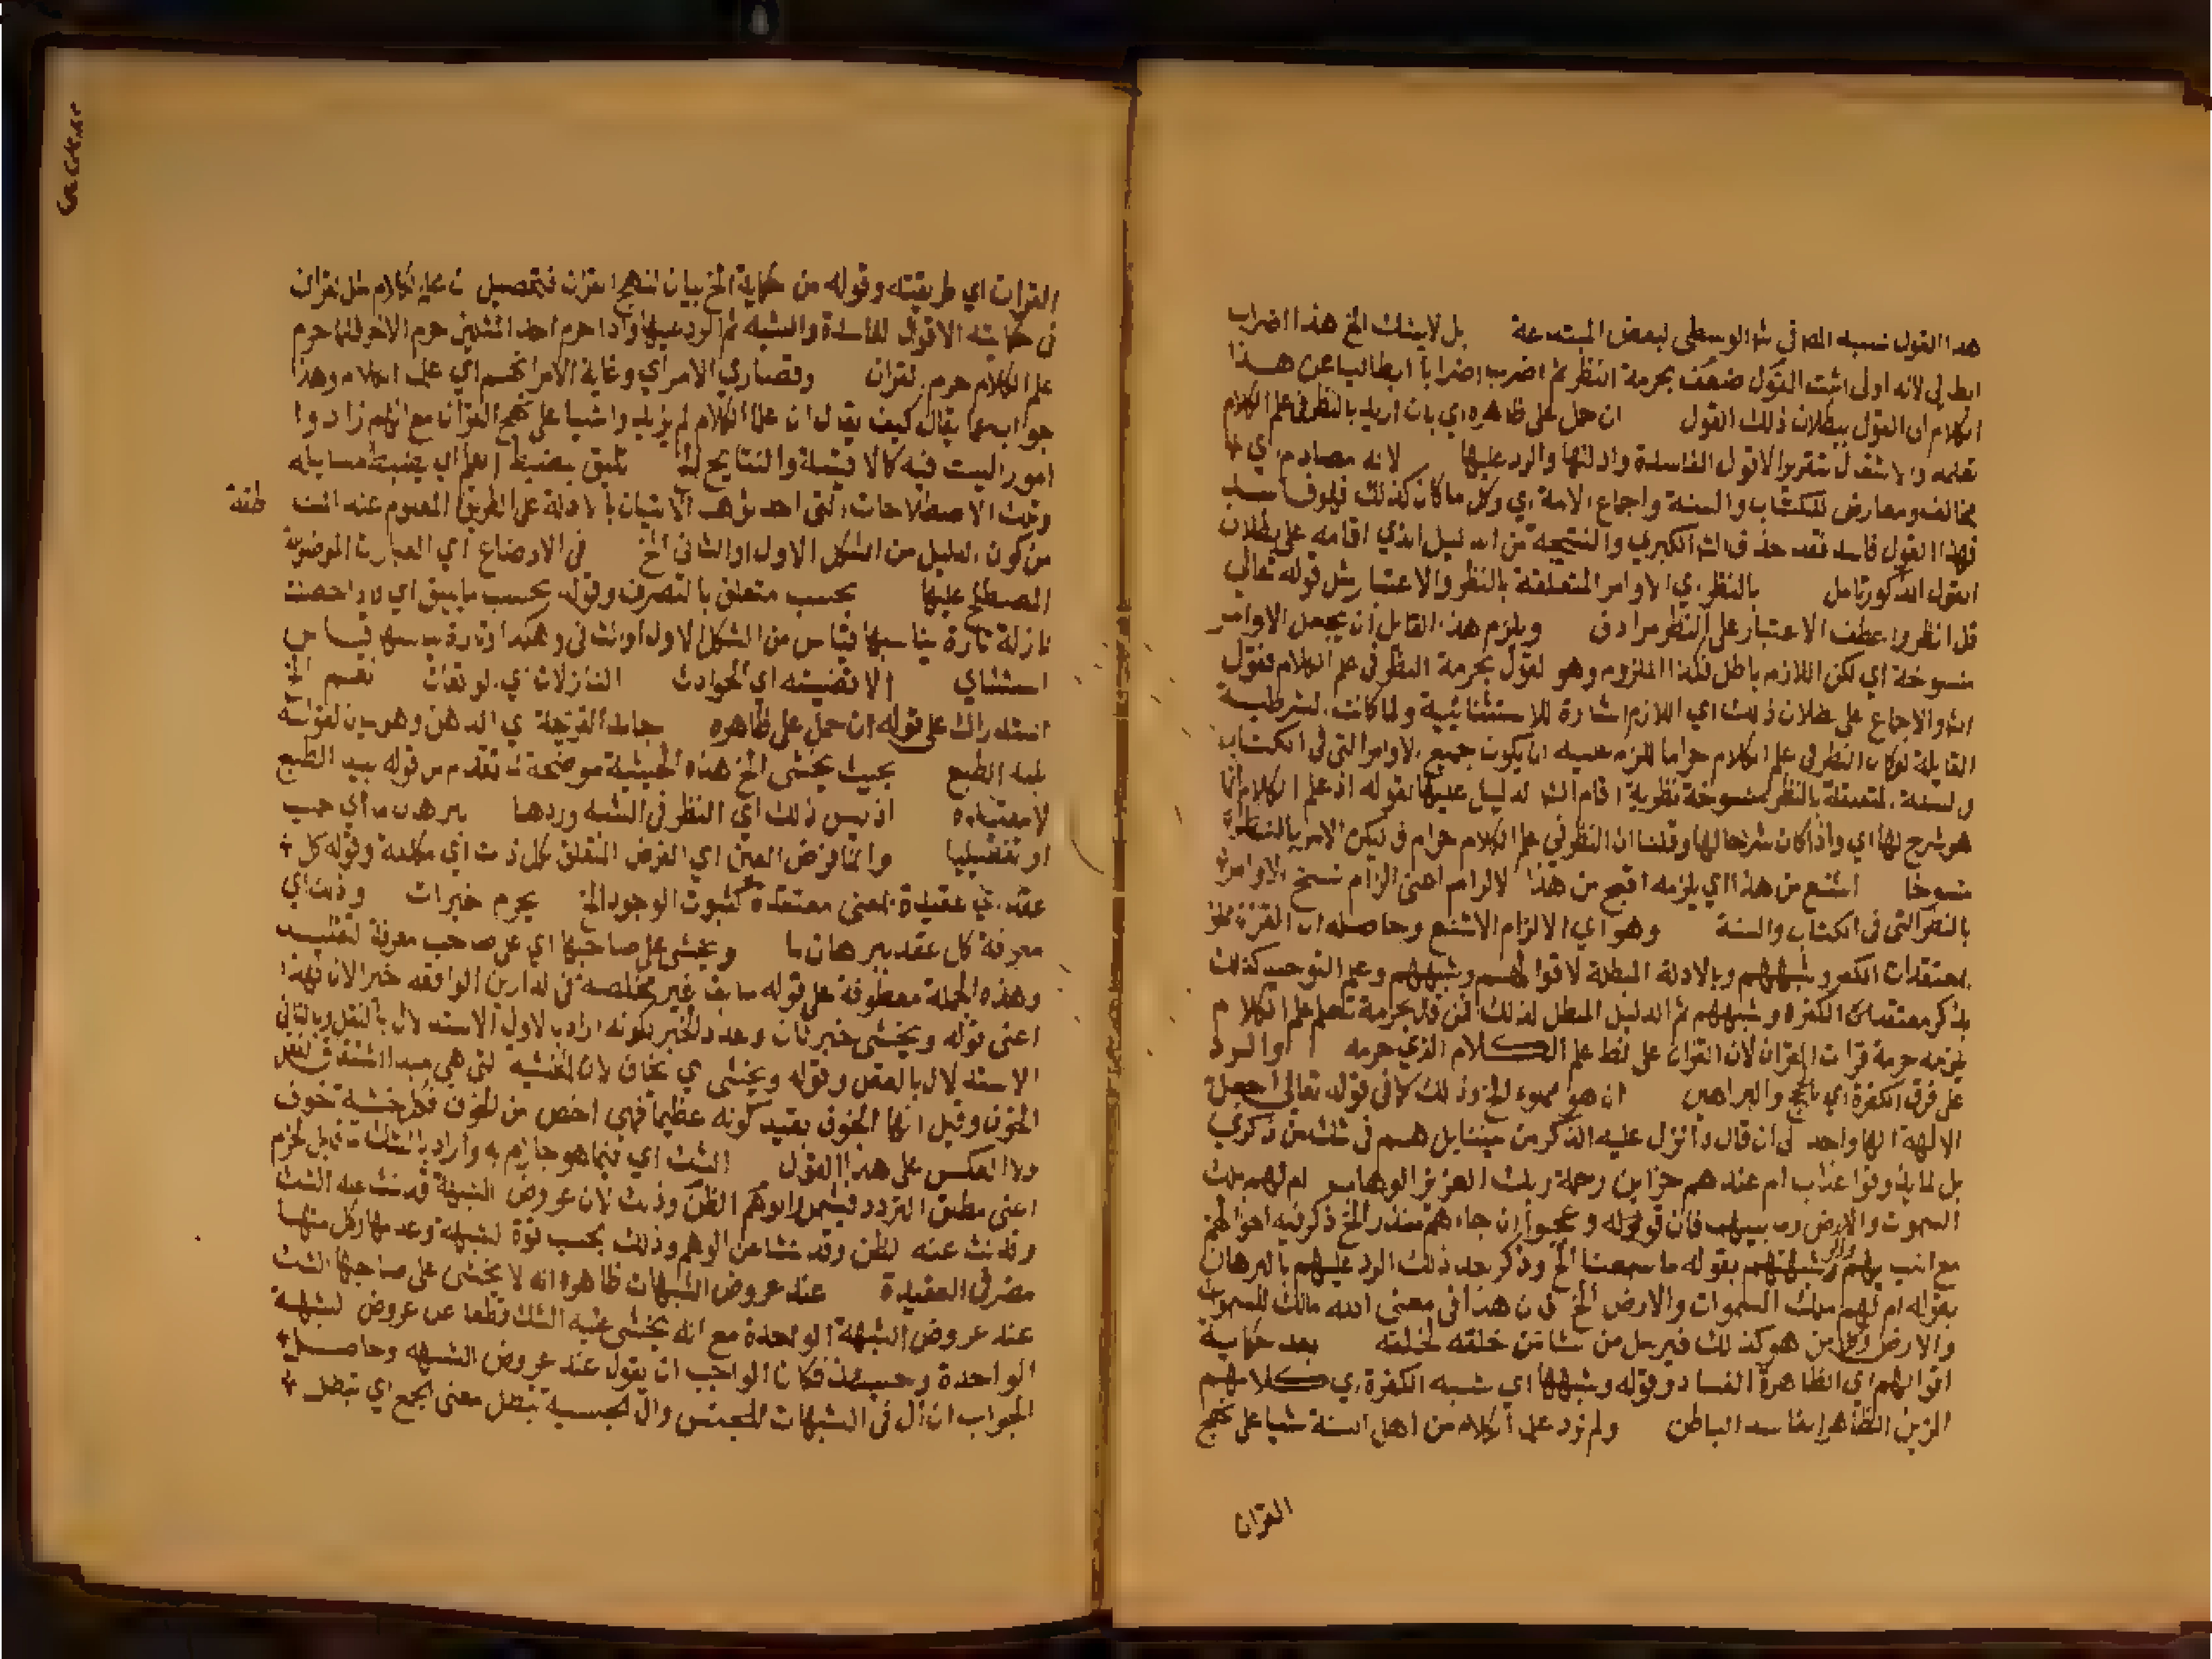 هذا القول نسبه المص في شرالوسطى لبعض المبتدعة بل لايشك الخ هذا اضراب
ابطالي لانه اولى اثبت القول ضعف بحرمة النظر ثم اضرب اضرابا ابطاليا عن هذا
الكلام الى القول ببطلان ذلك القول ان حمل على ظاهره اي بان اريد بالنظر في علم الكلام
تعلمه والاشتغال بتقرير الاقوال الفاسدة وادلتها والرد عليها لانه مصادم اي
مخالف ومعارض للكتاب والسنة واجماع الامة اي وكل ما كان كذلك فهو فاسد
فهذا القول فاسد فقد حذف الش الكبرى والنتيجة من الدليل الذي اقامه على بطلان
القول المذكور تامل بالنظر اي الاوامر المتعلقة بالنظر والاعتبار مثل قوله تعالى
قل انظروا عطف الاعتبار على النظر مرادف ويلزم هذا القايل ان يجعل الاوامر
منسوخة اي لكن اللازم باطل فكذا الملزوم وهو القول بحرمة النظر في علم الكلام فقول
الش والاجماع على بطلان ذلك اي اللازم اشارة للاستثنائية ولما كانت الشرطية
القايلة لو كان النظر في علم الكلام حراما للزم عليه ان يكون جميع الاوامر التي في الكتاب
والسنة المتعلقة بالنظر منسوخة نظرية اقام الش الدليل عليها بقوله اذ علم الكلام انما
هو شرح لها اي واذا كان شرحا لها وقلنا ان النظر في علم الكلام حرام فليكن الامر بالنظر
منسوخا اشنع من هذا اي يلزمه اقبح من هذا الالزام اعني الزام نسخ الاوامر
بالنظر التي في الكتاب والسنة وهو اي الالزام الاشنع وحاصله ان القران مملو
بمعتقدات الكفر وشبههم وبالادلة المبطلة لاقوالهم وشبههم وعلم التوحيد كذلك
يذكر معتقدات الكفرة وشبههم ثم الدليل المبطل لذلك فمن قال بحرمة تعلم علم الكلام
يلزمه حرمة قرات القران لان القران على نمط علم الكلام الذي حرمه والرد
على فرق الكفرة اي بالحجج والبراهين ان هو مملوء الخ وذلك كما في قوله تعالى اجعل
الالهة الها واحدا الى ان قال أانزل عليه الذكر من بيننا بل هم في شك من ذكري
بل لما يذوقوا عذاب ام عندهم خزاين رحمة ربك العزيز الوهاب ام لهم ملك
السموت والارض وما بينهما فان قوله وعجبوا ان جاءهم منذر الخ ذكر فيه اقوالهم
مع وشبهتهم بقوله ما سمعنا الخ وذكر بعد ذلك الرد عليهم بالبرهان
بقوله ام لهم ملك السموات والارض الخ فان هذا في معنى الله مالك للسموات
والارض وكل من هو كذلك فيرسل من شا من خلقه لخلقه بعد حكاية
اقوالهم اي الظاهرة الفساد وقوله وشبهها اي شبه الكفرة اي كلامهم
المزين الظاهر الفاسد الباطن ولم نزد علم الكلام من اهل السنة شيا على نهج
القران
القران اي طريقته وقوله من حكاية الخ بيان لنهج القران فتحصل ان علم الكلام مثل القران
في حكايته الاقوال الفاسدة والشبه ثم الرد عليها واذا حرم احد المثلين حرم الاخر فلما حرم
علم الكلام حرم القران وقصارى الامر اي وغاية الامر الخ اي علم الكلام وهذا
جواب عما يقال كيف يقال ان علم الكلام لم يزيدوا شيا على نهج القران مع انهم زادوا
امورا ليست فيه كالاقيسة والنتايج لها تليق بضبط العلم اي بضبط مسايله
وتلك الاصطلاحات التي احدثوها الاتيان بالادلة على الطريق المعلوم عند المناطقة
من كون الدليل من الشكل الاول او الثاني الخ في الاوضاع اي العبارات الموضوعة
المصطلح عليها بحسب متعلق بالتصرف وقوله بحسب ما يليق اي اذا حصلت
نازلة تارة يناسبها قياس من الشكل الاول او الثاني وهكذا وتارة يناسبها قياس
استثناي الاقضيته اي الحوادث النازلات اي الواقعات نعم الخ
استدراك على قوله ان حمل على ظاهره جامد القريحة اي الذهن وهو بمعنى قوله
بليد الطبع بحيث يخشى الخ هذه الحيثية موضحة لما تقدم من قوله بليد الطبع
لا معتقده اذ ليس ذلك اي النظر في الشبه وردها ببرهان ما اي جملي
او تفصيليا وانما فرض العين اي الفرض المتعلق بكل ذات اي مكلفة وقوله كل
عقد اي عقيدة بمعنى معتقده كثبوت الوجود الخ يحرم خبر ان وذلك اي
معرفة كل عقد ببرهان ما ويخشى على صاحبها اي على صاحب معرفة التقليد
وهذه الجملة معطوفة على قوله سابق غير مخلصه في الدارين الواقعه خبر الان فهذا
اعني قوله ويخشى خبر ثان وعدد الخبر لكونه اراد بالاول الاستدلال بالنقل وبالثاني
الاستدلال بالعقل وقوله ويخشى اي يخاف لان الخشية التي هي مبدا اشتقاق الفعل
الخوف وقيل انها الخوف بقيد كونه عظيما فهي اخص من الخوف فكل خشية خوف
ولا العكس على هذا القول الشك اي فيما هو جازم به واراد بالشك ما قابل الجزم
اعني مطلق التردد فيشمل الوهم الظن وذلك لان عروض الشبهة قد نشا عنه الشك
وقد نشا عنه الظن وقد نشا عنه الوهم وذلك بحسب قوة الشبهة وعدمها وكل منها
مضر في العقيدة عند عروض الشبهات ظاهره انه لا يخشى على صاحبها الشك
عند عروض الشبهة الواحدة مع انه يخشى عليه الشك قطعا عن عروض الشبهة
الواحدة وحينئذ فكان الواجب ان يقول عند عروض الشبهه وحاصل
الجواب ان ال في الشبهات للجنس وال الجنسية تبطل معنى الجمع اي تبطل